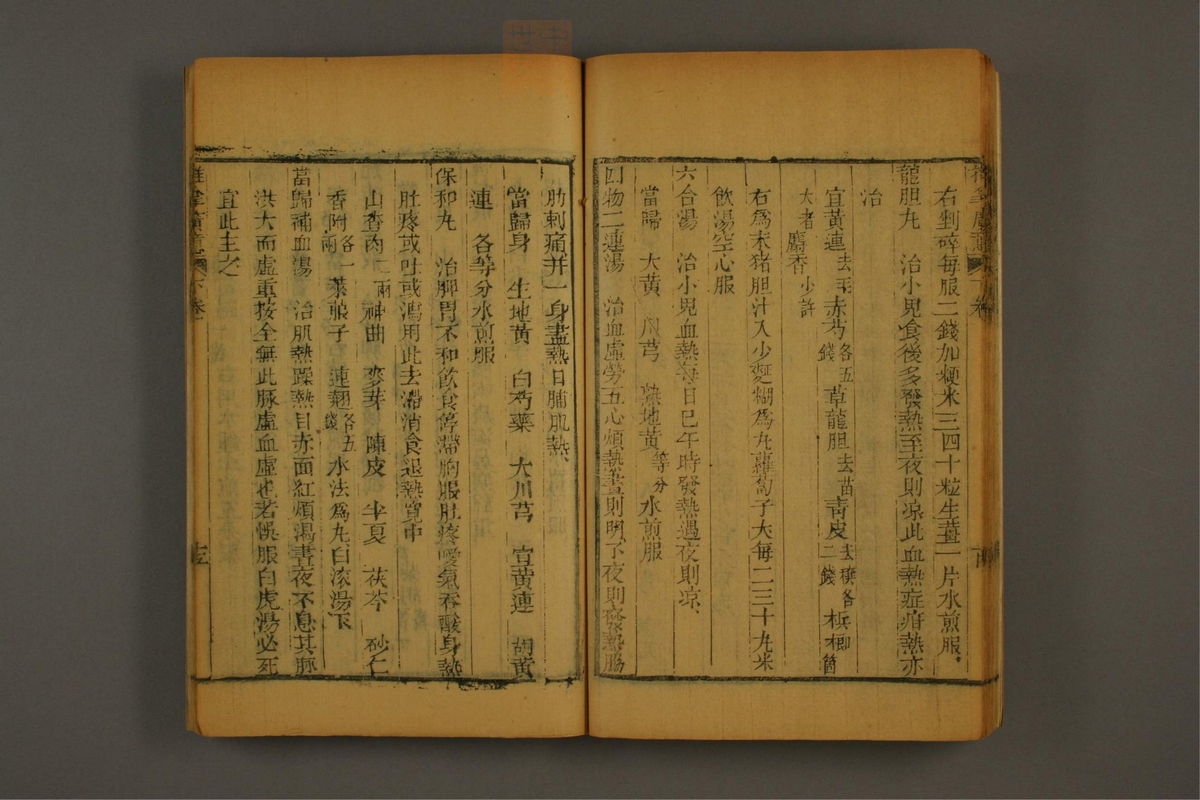 右剉碎每服二錢加粳米三四十粒生薑一片水煎服
龍胆丸　治小兒食後多發熱至夜則凉此血熱症疳熱亦
治
宜黃連去毛赤芍各五錢　草龍胆去苗　靑皮去穰各二錢　梹榔箇
大者　麝香少許
右爲末猪胆汁入少麪糊爲丸蘿蔔子大每二三十丸米
飲湯空心服
六合湯　治小兒血熱每日巳午時發熱遇夜則凉
當歸　大黃　川芎　熱地黃等分水煎服
四物二連湯　治血虛勞五心煩熱晝則明了夜則發熱脇
肋刺痛并一身盡熱日脯肌熱
當歸身　生地黃　白芍藥　大川芎　宣黃連　胡黃
連　各等分水煎服
保和丸　治脾胃不和飲食停滯胸服肚疼噯氣吞酸身熱
肚疼或吐或瀉用此去滯消食退熱寬中
山查肉二兩　神曲　麥芽　陳皮　半夏　茯苓　砂仁
香附各一兩　萊菔子　連翹各五錢　水法爲丸白滾湯下
當歸補血湯　治肌熱躁熱目赤面紅煩渴晝夜不息其脉
洪大而虛重按全無此脉虛血虛也若悞服白虎湯必死
宜此主之
推拏廣意　下卷